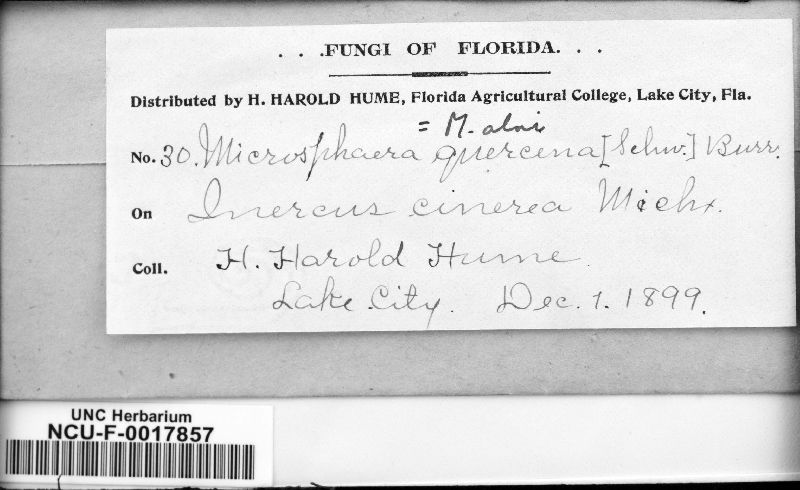 . . .FUNGI OF FLORIDA. . .
Distributed by H. HAROLD HUME, Florida Agricultural College, Lake City, Fla.
= M. alni
No. 30. Microsphaera quercina [Schw.] Burr.
On Quercus cinerea Michx.
Coll. H. Harold Hume
Lake City. Dec. 1. 1899.
UNC Herbarium
NCU-F-0017857